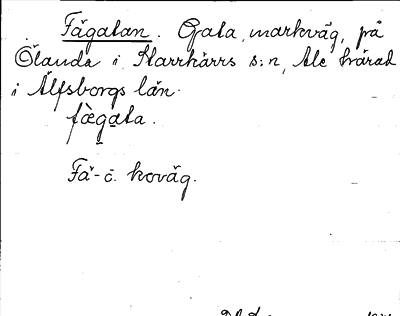 Fägatan. Gata, markväg, på
Ölanda i Starrkärrs s:n, Ale härad
i Älfsborgs län.
fègata.
Fä- c. koväg.